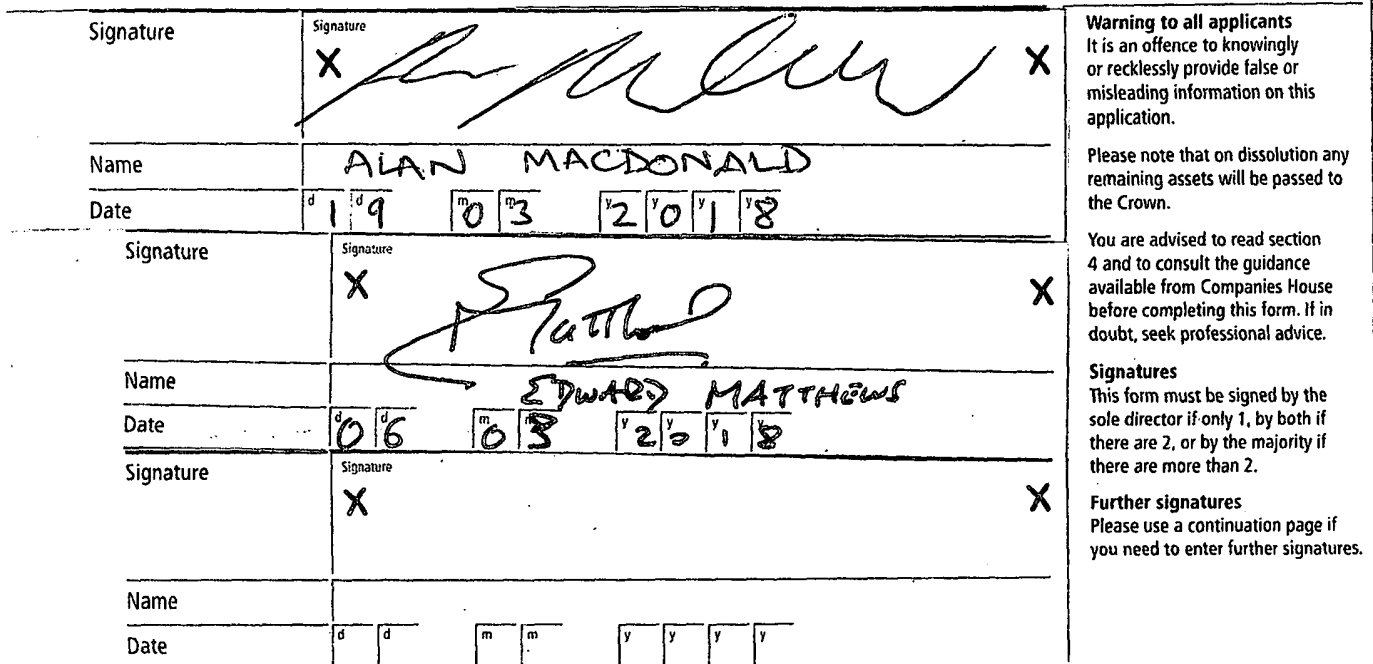 Signature
Signature
X X
Name ALAN MACDONALD
Date d 1 d 9 m 0 m 3 y 2 y 0 y 1 y 8
Signature
Signature
X X
Name EDWARD MATTHEWS
Date d 0 d 6 m 0 m 3 y 2 y 0 y 1 y 8
Signature
Signature
X X
Name
Date d d m m y y y y
Warning to all applicants
It is an offence to knowingly
or recklessly provide false or
misleading information on this
application.
Please note that on dissolution any
remaining assets will be passed to
the Crown.
You are advised to read section
4 and to consult the guidance
available from Companies House
before completing this form. If in
doubt, seek professional advice.
Signatures
This form must be signed by the
sole director if only 1, by both if
there are 2, or by the majority if
there are more than 2.
Further signatures
Please use a continuation page if
you need to enter further signatures.